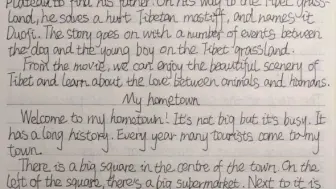 Plateau to find his father. On his way to the Tibet grass-
land, he saves a hurt Tibetan mastiff, and names it
Duoji. The story goes on with a number of events between
the dog and the young boy on the Tibet grassland.
From the movie, we can enjoy the beautiful scenery of
Tibet and learn about the love between animals and humans.
My hometown
Welcome to my hometown! It's not big but it's busy. It
has a long history. Every year many tourists come to my
town.
There is a big square in the centre of the town. On the
left of the square, there's a big supermarket. Next to it is